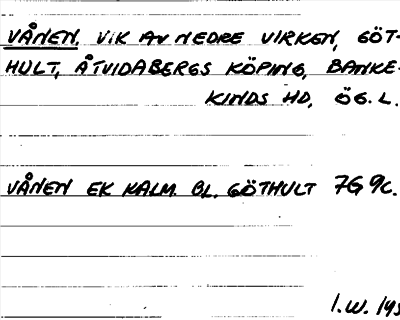 VÅNEN, VIK AV NEDRE VIRKEN, GÖT-
HULT, ÅTVIDABERGS KÖPING, BANKE-
KINDS HD, ÖG. L.
VÅNEN EK KALM. BL. GÖTHULT 7G 9c.
I.W. 195